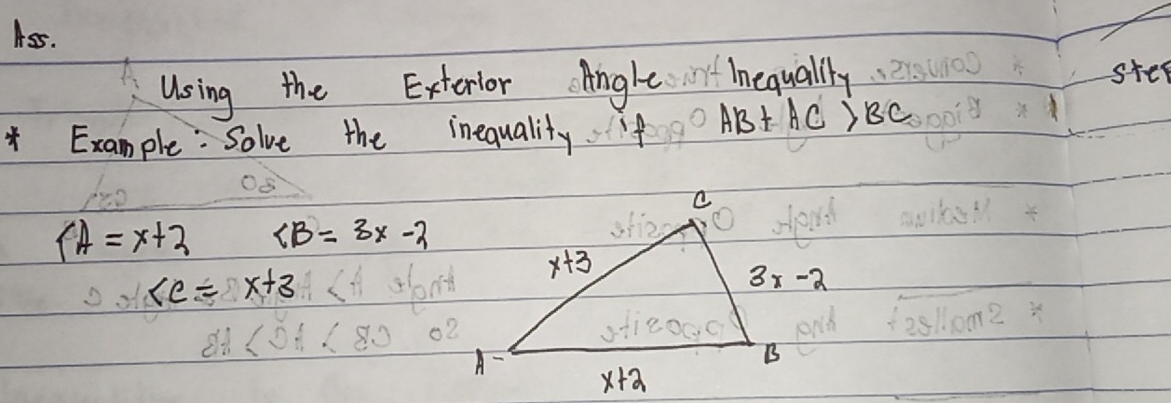 Ass.
Using the Exterior Angle Inequality
Step
* Example: Solve the inequality if AB + AC > BC
<A = x+2 <B = 3x -2
<C = x+3
C
x+3
3x -2
A
B
x+2